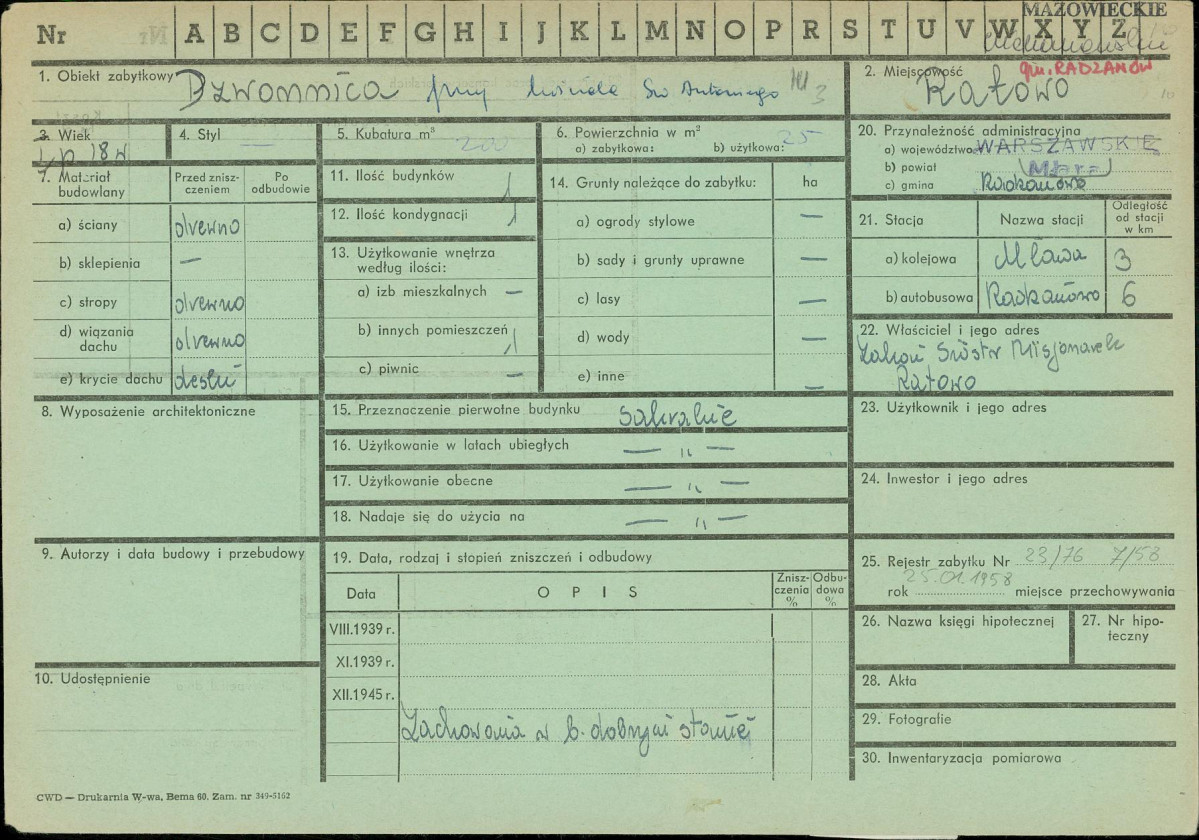 MAZOWIECKIE
Nr A B C D E F G H I J K L M N O P R S T U V W X Y Z
gm. RADZANÓW
1. Obiekt zabytkowy Dzwonnica przy kościele Św Antoniego
3
2. Miejscowość Ratowo
3. Wiek
4. Styl —
5. Kubatura m³ 200
6. Powierzchnia w m²
a) zabytkowa: b) użytkowa: 25
1 p 18 w
7. Materiał budowlany
Przed zniszczeniem
Po odbudowie
a) ściany drewno
b) sklepienia —
c) stropy drewno
d) wiązania dachu drewno
e) krycie dachu deski
11. Ilość budynków 1
12. Ilość kondygnacji 1
13. Użytkowanie wnętrza według ilości:
a) izb mieszkalnych —
b) innych pomieszczeń 1
c) piwnic —
14. Grunty należące do zabytku: ha
a) ogrody stylowe —
b) sady i grunty uprawne —
c) lasy —
d) wody —
e) inne —
20. Przynależność administracyjna
a) województwo WARSZAWSKIE
b) powiat Mława
c) gmina
21. Stacja
Nazwa stacji
Odległość od stacji w km
a) kolejowa Mława 3
b) autobusowa 6
22. Właściciel i jego adres
Zakon Sióstr Misjonarek
Ratowo
8. Wyposażenie architektoniczne
15. Przeznaczenie pierwotne budynku sakralne
16. Użytkowanie w latach ubiegłych — " —
17. Użytkowanie obecne — " —
18. Nadaje się do użycia na — " —
23. Użytkownik i jego adres
24. Inwestor i jego adres
9. Autorzy i data budowy i przebudowy
19. Data, rodzaj i stopień zniszczeń i odbudowy
Data
OPIS
Zniszczenia %
Odbudowa %
VIII.1939 r.
XI.1939 r.
XII.1945 r.
Zachowana w b. dobrym stanie
25. Rejestr zabytku Nr 23/76 7/58
25.01.1958
rok miejsce przechowywania
26. Nazwa księgi hipotecznej
27. Nr hipoteczny
10. Udostępnienie
28. Akta
29. Fotografie
30. Inwentaryzacja pomiarowa
CWD — Drukarnia W-wa, Bema 60. Zam. nr 349-5162